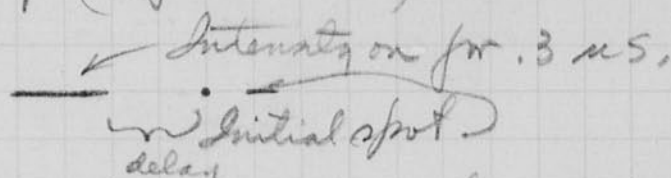 Intensity on for .3 us.
Initial spot.
delay